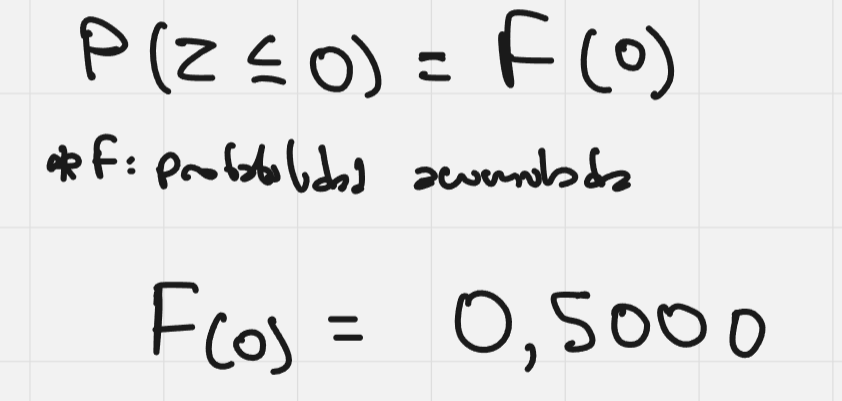 P(Z ≤ 0) = F(0)
*F: probabilidad acumulada
F(0) = 0,5000